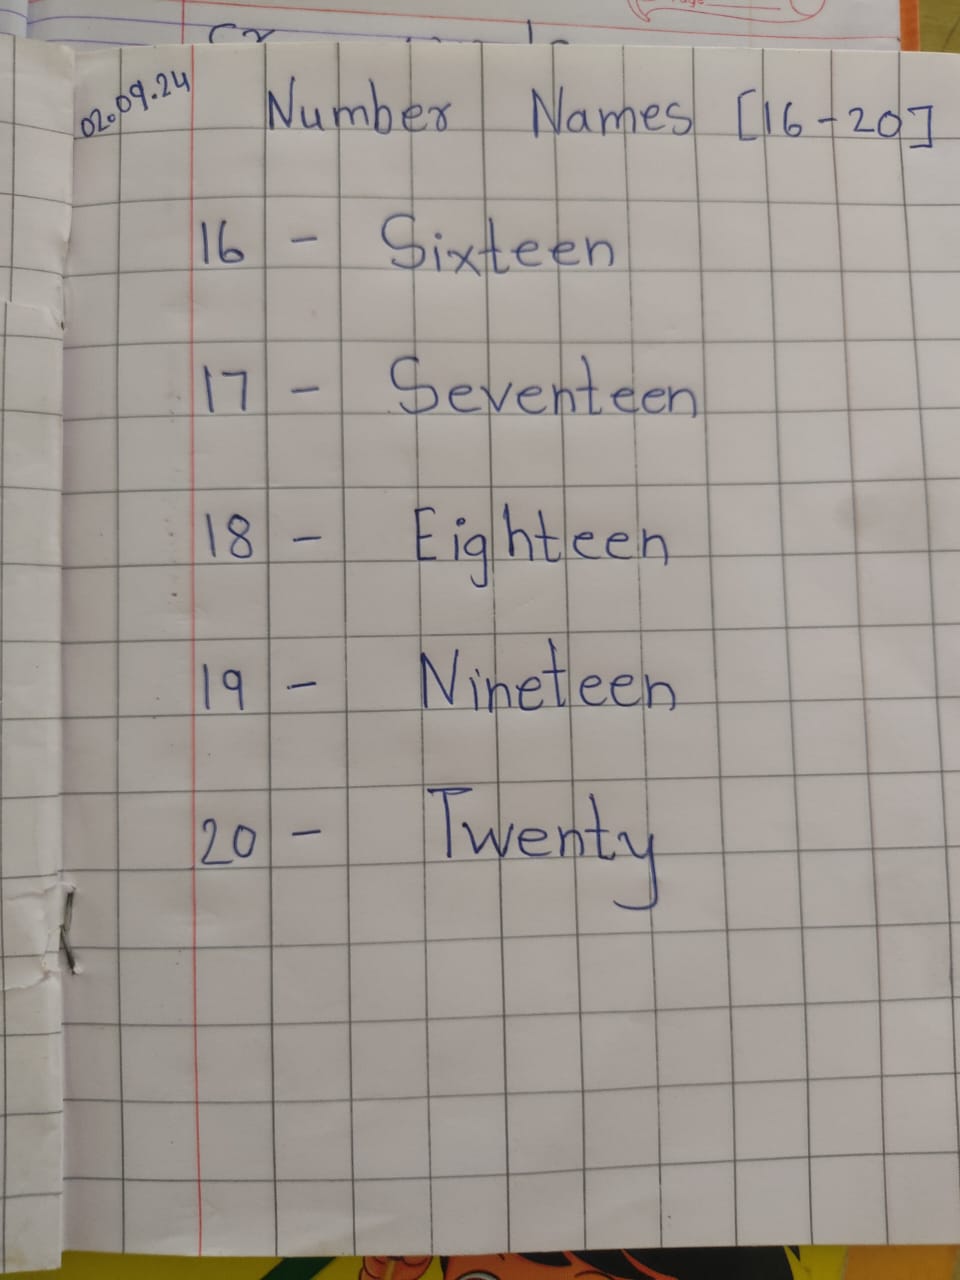 02.09.24
Number Names [16-20]
16 - Sixteen
17 - Seventeen
18 - Eighteen
19 - Nineteen
20 - Twenty